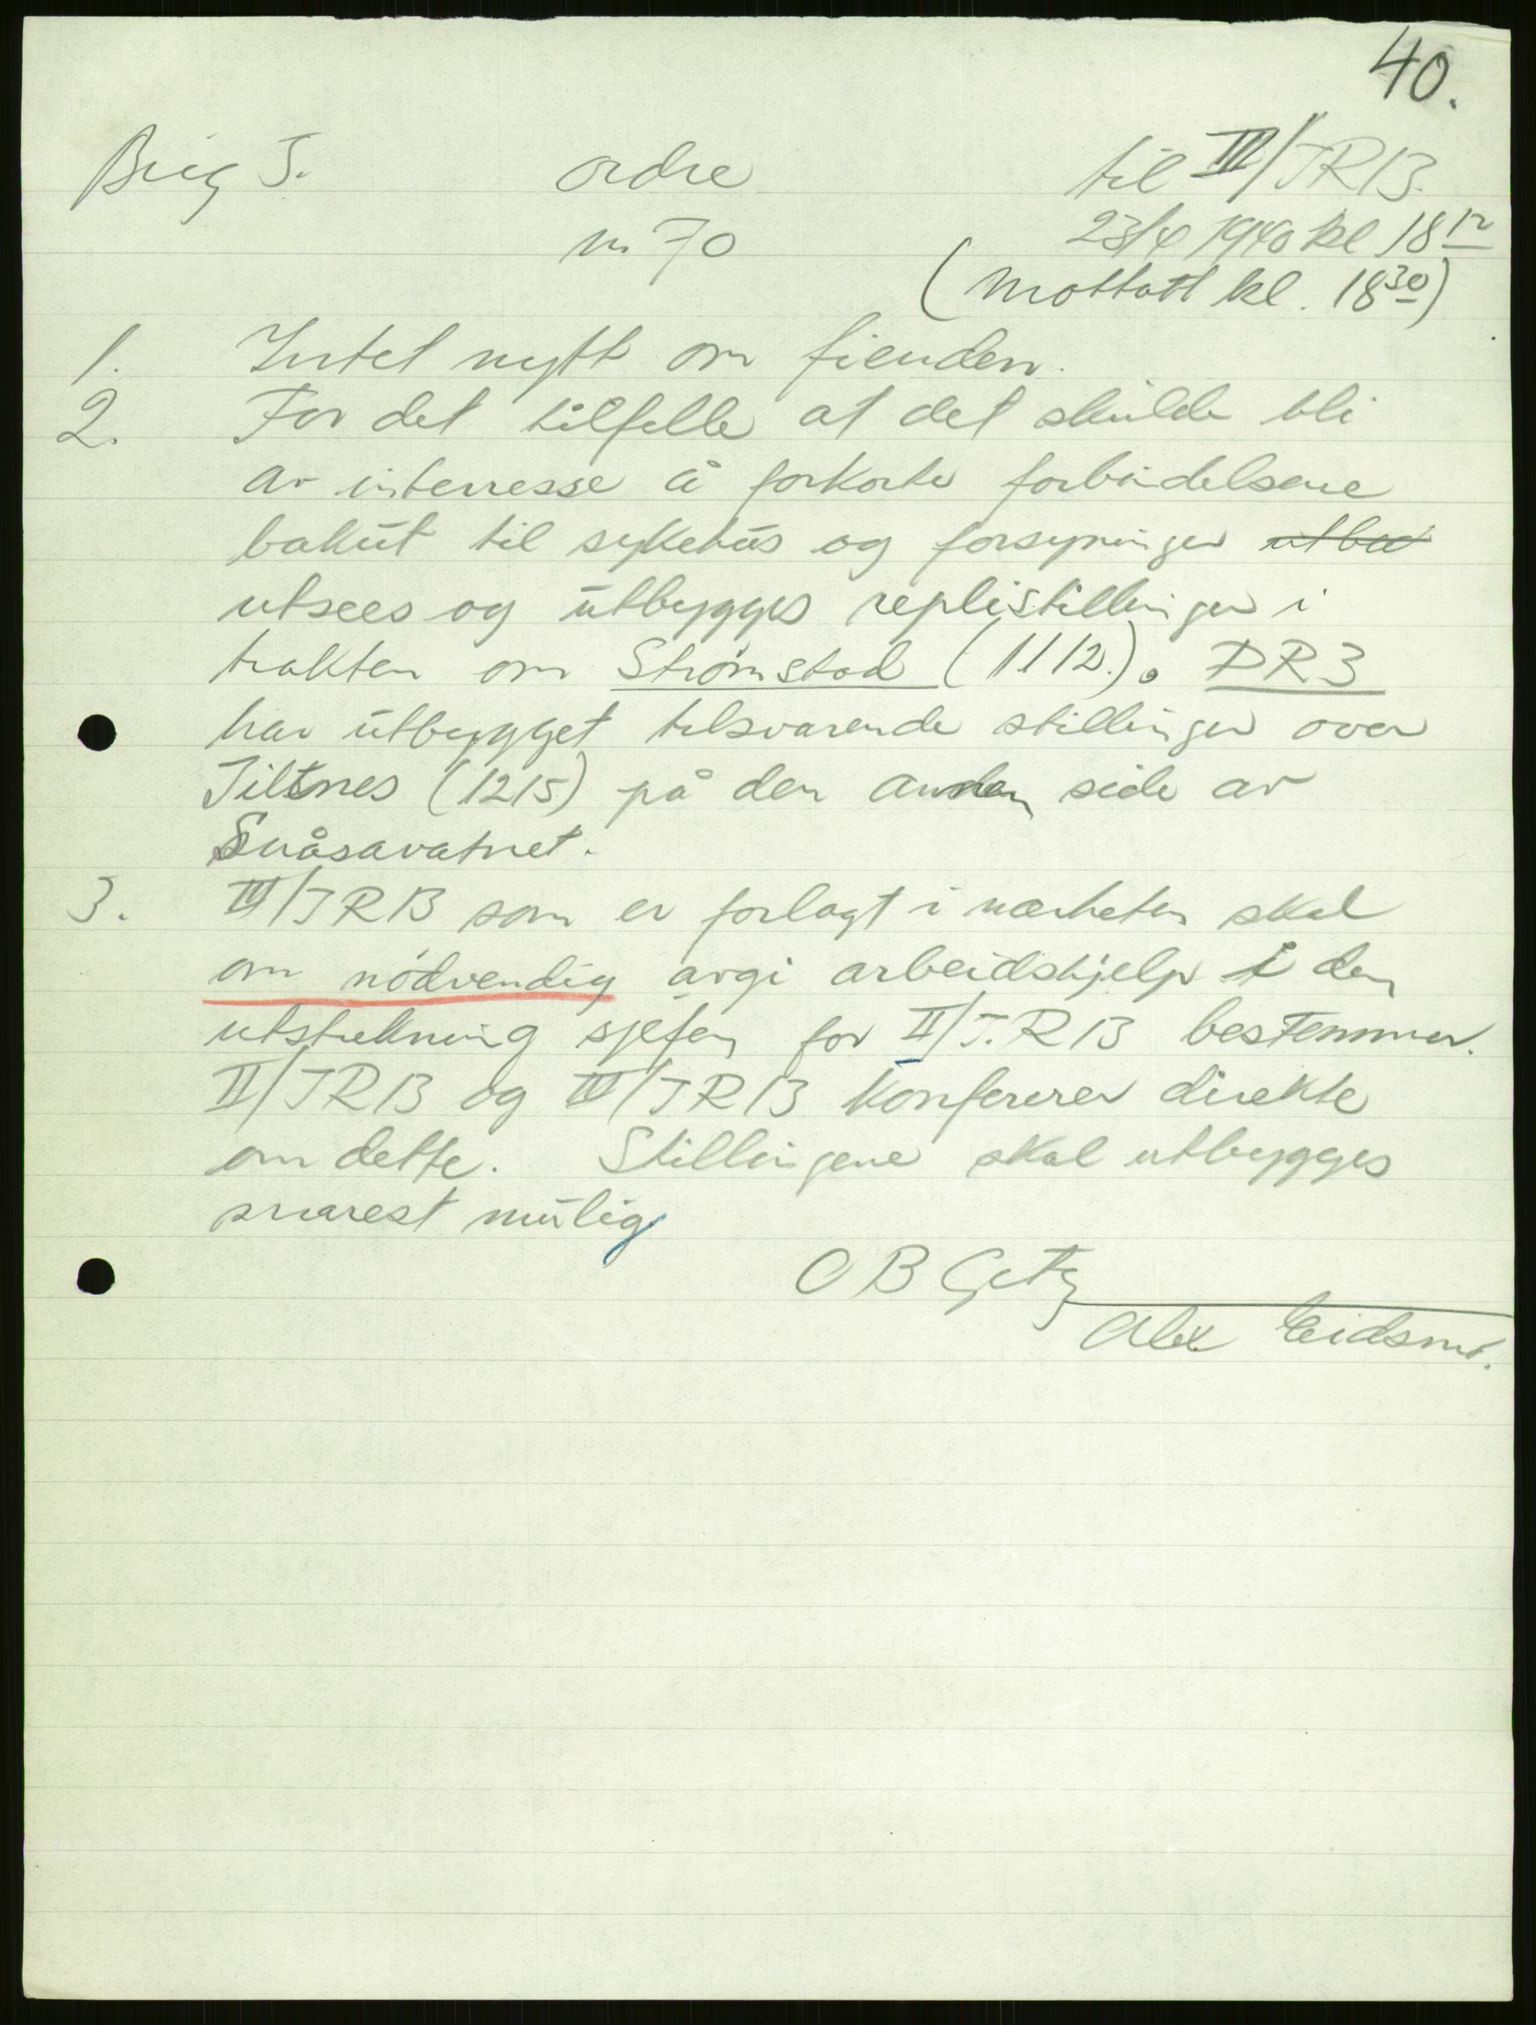 40.
Brig 5. ordre til III/IR13.
nr 70 23/4 1940 kl 18 12
(Mottatt kl. 18 30)
1. Intet nytt om fienden.
2. For det tilfelle at det skulde bli
av interresse å forkorte forbindelsene
bakut til sykehus og forsyninger
utsees og utbygges replistillinger i
trakten om Strømstad (1112). DR3
har utbygget tilsvarende stillinger over
Jiltnes (1215) på den anden side av
Snåsavatnet.
3. III/IR13 som er forlagt i nærheten skal
om nödvendig avgi arbeidshjelp i den
utstrekning sjefen for II/I.R13 bestemmer.
II/IR13 og III/IR13 konfererer direkte
om dette. Stillingene skal utbygges
snarest mulig
O B Getz
Alex Eidsmo.